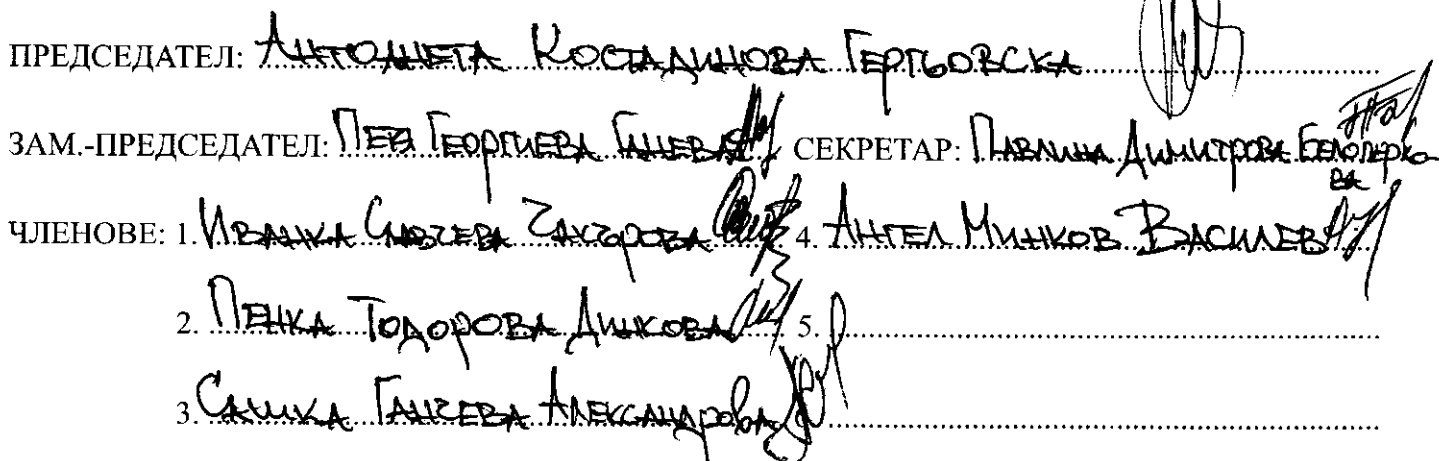 ПРЕДСЕДАТЕЛ: АНТОАНЕТА КОСТАДИНОВА ГЕРГЬОВСКА
ЗАМ.-ПРЕДСЕДАТЕЛ: ГЕОРГИЕВА ГАНЕВА СЕКРЕТАР: ПАВЛИНА ДИМИТРОВА БЕЛОПЕРКОВА
ЧЛЕНОВЕ: 1. ИВАНКА ЗАХАРОВА 4. АНГЕЛ МИНКОВ ВАСИЛЕВ
2. ПЕНКА ТОДОРОВА ДИНКОВА 5.
3. САШКА ГАНЧЕВА АЛЕКСАНДРОВА